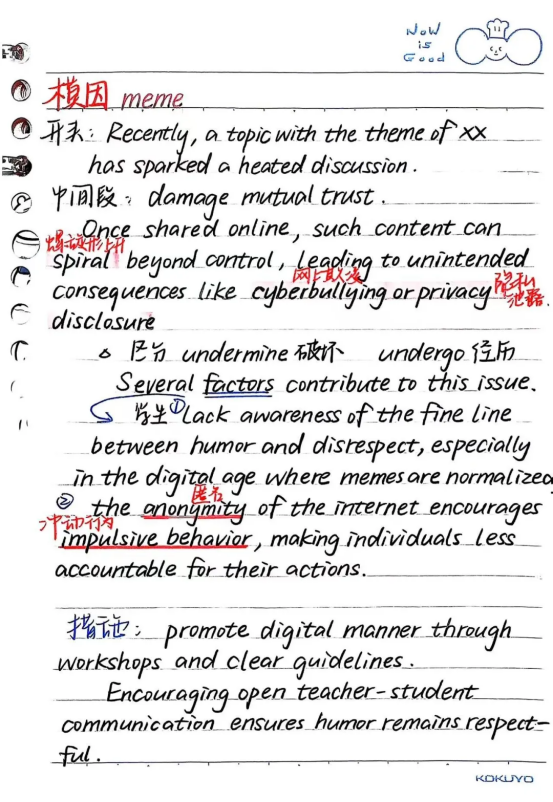 NoW
is
Good
模因 meme
开头: Recently, a topic with the theme of xx
has sparked a heated discussion.
中间段: damage mutual trust.
Once shared online, such content can
螺旋形上升
spiral beyond control, leading to unintended
网上欺凌
consequences like cyberbullying or privacy 隐私
泄露.
disclosure
△ 区分 undermine 破坏 undergo 经历
Several factors contribute to this issue.
学生 ① lack awareness of the fine line
between humor and disrespect, especially
in the digital age where memes are normalized,
匿名
② the anonymity of the internet encourages
冲动行为
impulsive behavior, making individuals less
accountable for their actions.
措施: promote digital manner through
workshops and clear guidelines.
Encouraging open teacher-student
communication ensures humor remains respect-
ful.
KOKUYO